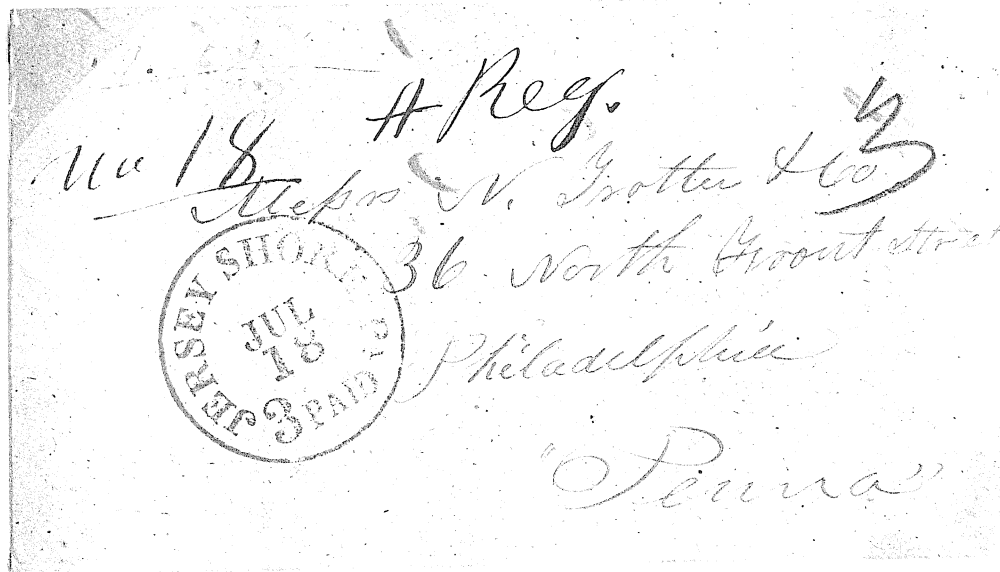 A Reg.
No 18
Messrs N. Trotter & Co
36 North Front Street
Philadelphia
"Penna"
JERSEY SHORE Pa
JUL
18
3 PAID